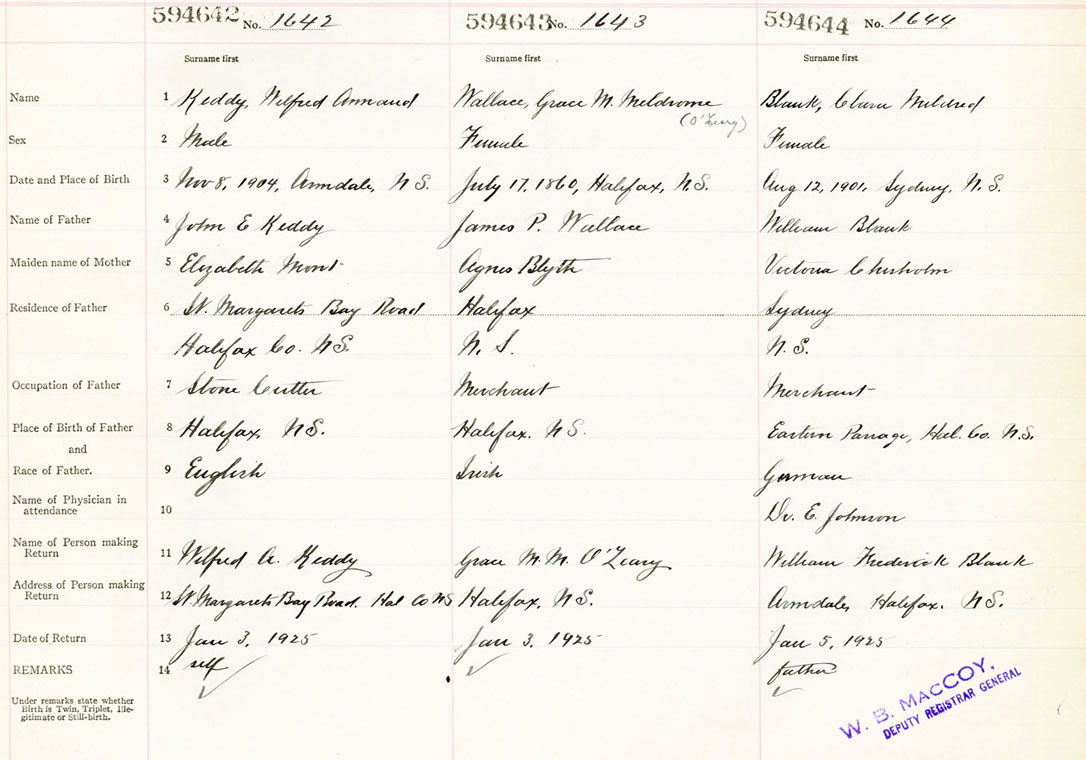 594642 No. 1642 594643 No. 1643 594644 No. 1644
Surname first Surname first Surname first
Name 1 Keddy, Wilfred Armand Wallace, Grace M. Meldrome Blank, Clara Mildred
(O'Leary)
Sex 2 Male Female Female
Date and Place of Birth 3 Nov 8, 1904, Armdale, N S. July 17, 1860, Halifax, N.S. Aug 12, 1901, Sydney, N. S.
Name of Father 4 John E Keddy James P. Wallace William Blank
Maiden name of Mother 5 Elizabeth Mont Agnes Blyth Victoria Chisholm
Residence of Father 6 St. Margarets Bay Road Halifax Sydney
Halifax Co. N.S. N. S. N. S.
Occupation of Father 7 Stone Cutter Merchant Merchant
Place of Birth of Father 8 Halifax, N.S. Halifax. N S. Eastern Passage, Hal. Co. N.S.
and
Race of Father. 9 English Irish German
Name of Physician in
attendance 10 Dr. E. Johnson
Name of Person making
Return 11 Wilfred A. Keddy Grace M. M. O'Leary William Frederick Blank
Address of Person making
Return 12 St. Margarets Bay Road. Hal Co NS Halifax, N.S. Armdale, Halifax. N.S.
Date of Return 13 Jan 3, 1925 Jan 3, 1925 Jan 5, 1925
REMARKS 14 self father
Under remarks state whether
Birth is Twin, Triplet, Ille-
gitimate or Still-birth.
W. B. MACCOY,
DEPUTY REGISTRAR GENERAL